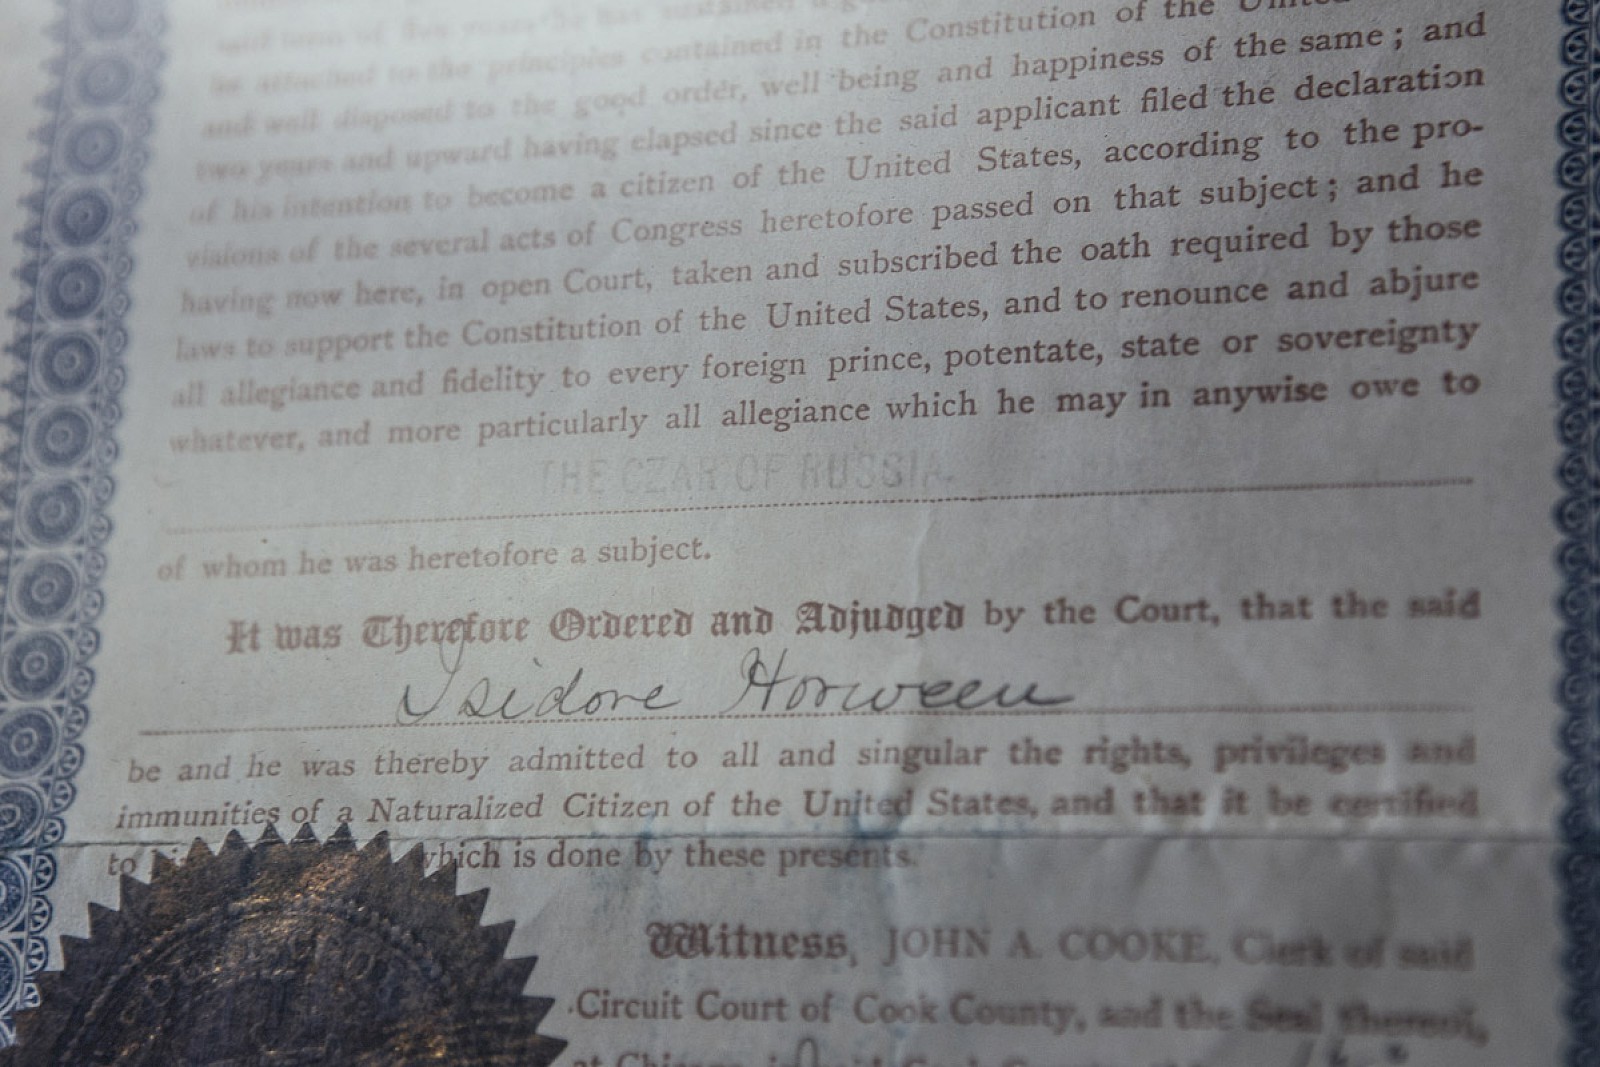 of five years he has sustained a
be attached to the principles contained in the Constitution of the United
and well disposed to the good order, well being and happiness of the same; and
two years and upward having elapsed since the said applicant filed the declaration
of his intention to become a citizen of the United States, according to the pro-
visions of the several acts of Congress heretofore passed on that subject; and he
having now here, in open Court, taken and subscribed the oath required by those
laws to support the Constitution of the United States, and to renounce and abjure
all allegiance and fidelity to every foreign prince, potentate, state or sovereignty
whatever, and more particularly all allegiance which he may in anywise owe to
THE CZAR OF RUSSIA.
of whom he was heretofore a subject.
It was Therefore Ordered and Adjudged by the Court, that the said
Isidore Horween
be and he was thereby admitted to all and singular the rights, privileges and
immunities of a Naturalized Citizen of the United States, and that it be certified
to which is done by these presents.
Witness, JOHN A. COOKE, Clerk of said
Circuit Court of Cook County, and the Seal thereof,
at Chicago, in said